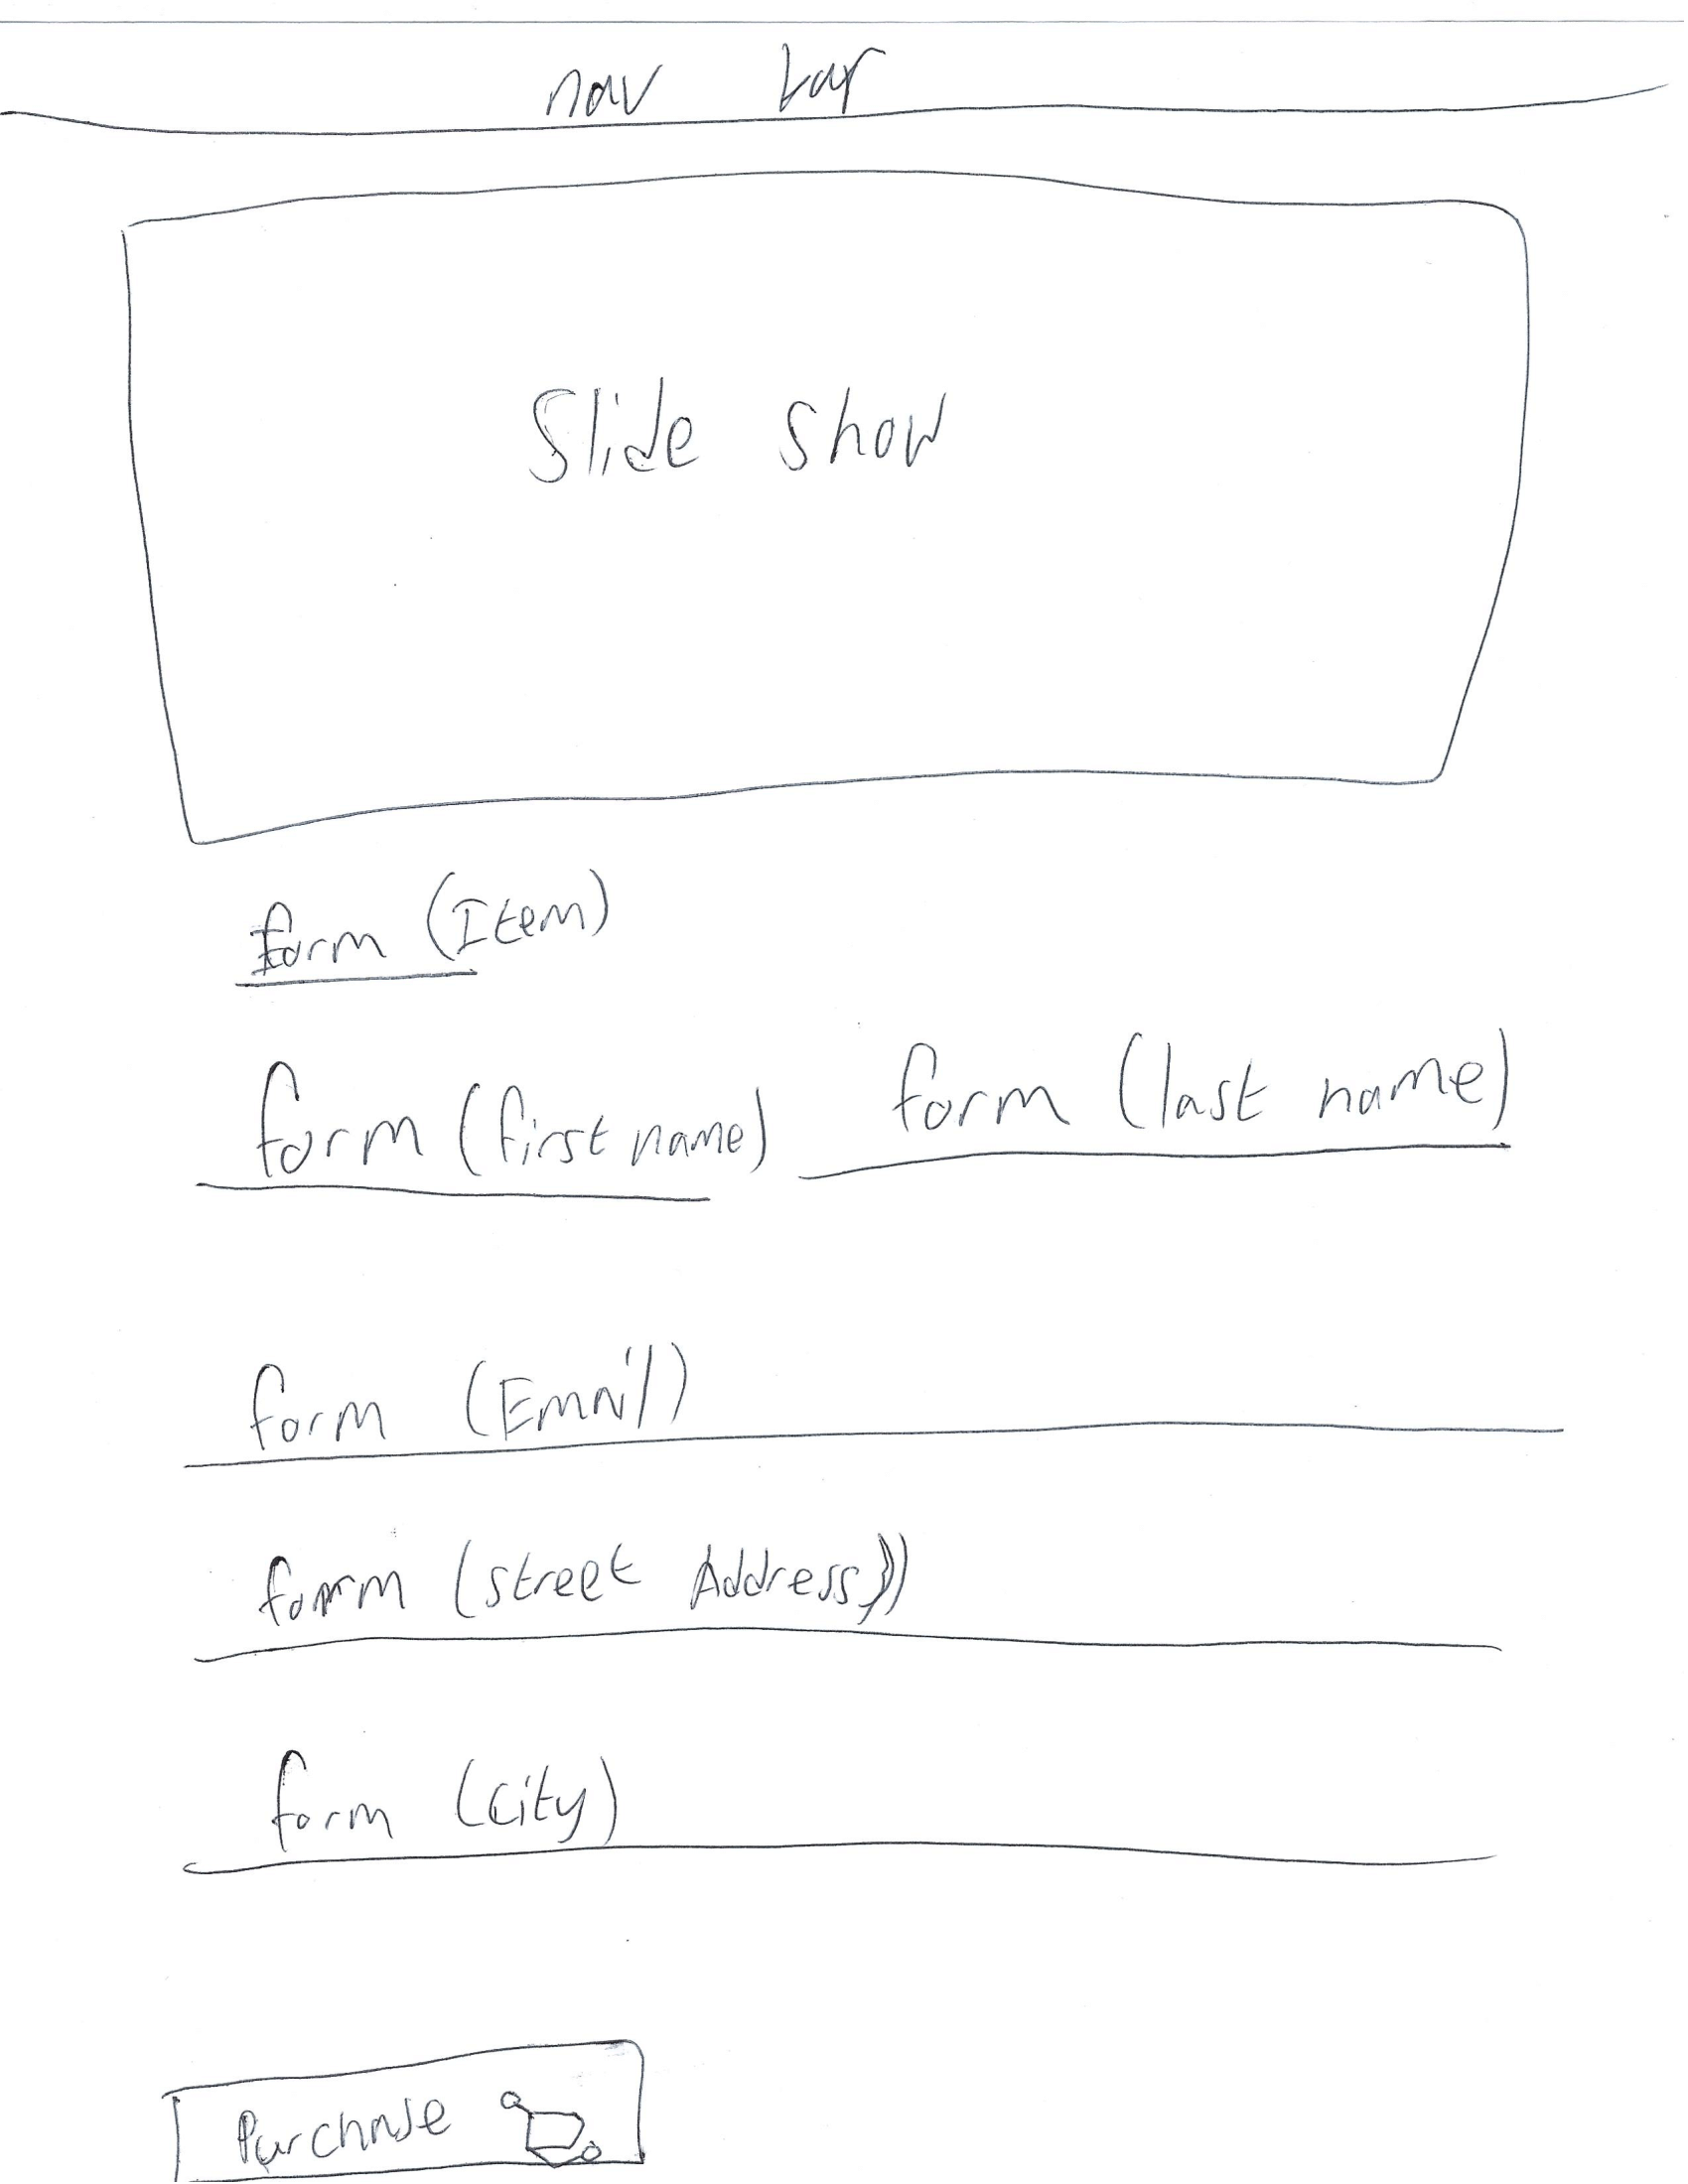 nav bar
Slide show
form (Item)
form (first name) form (last name)
form (Email)
form (street Address))
form (City)
Purchase